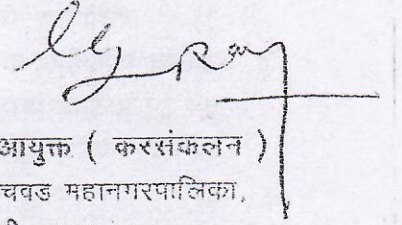 आयुक्त ( करसंकलन )
चवड महानगरपालिका,